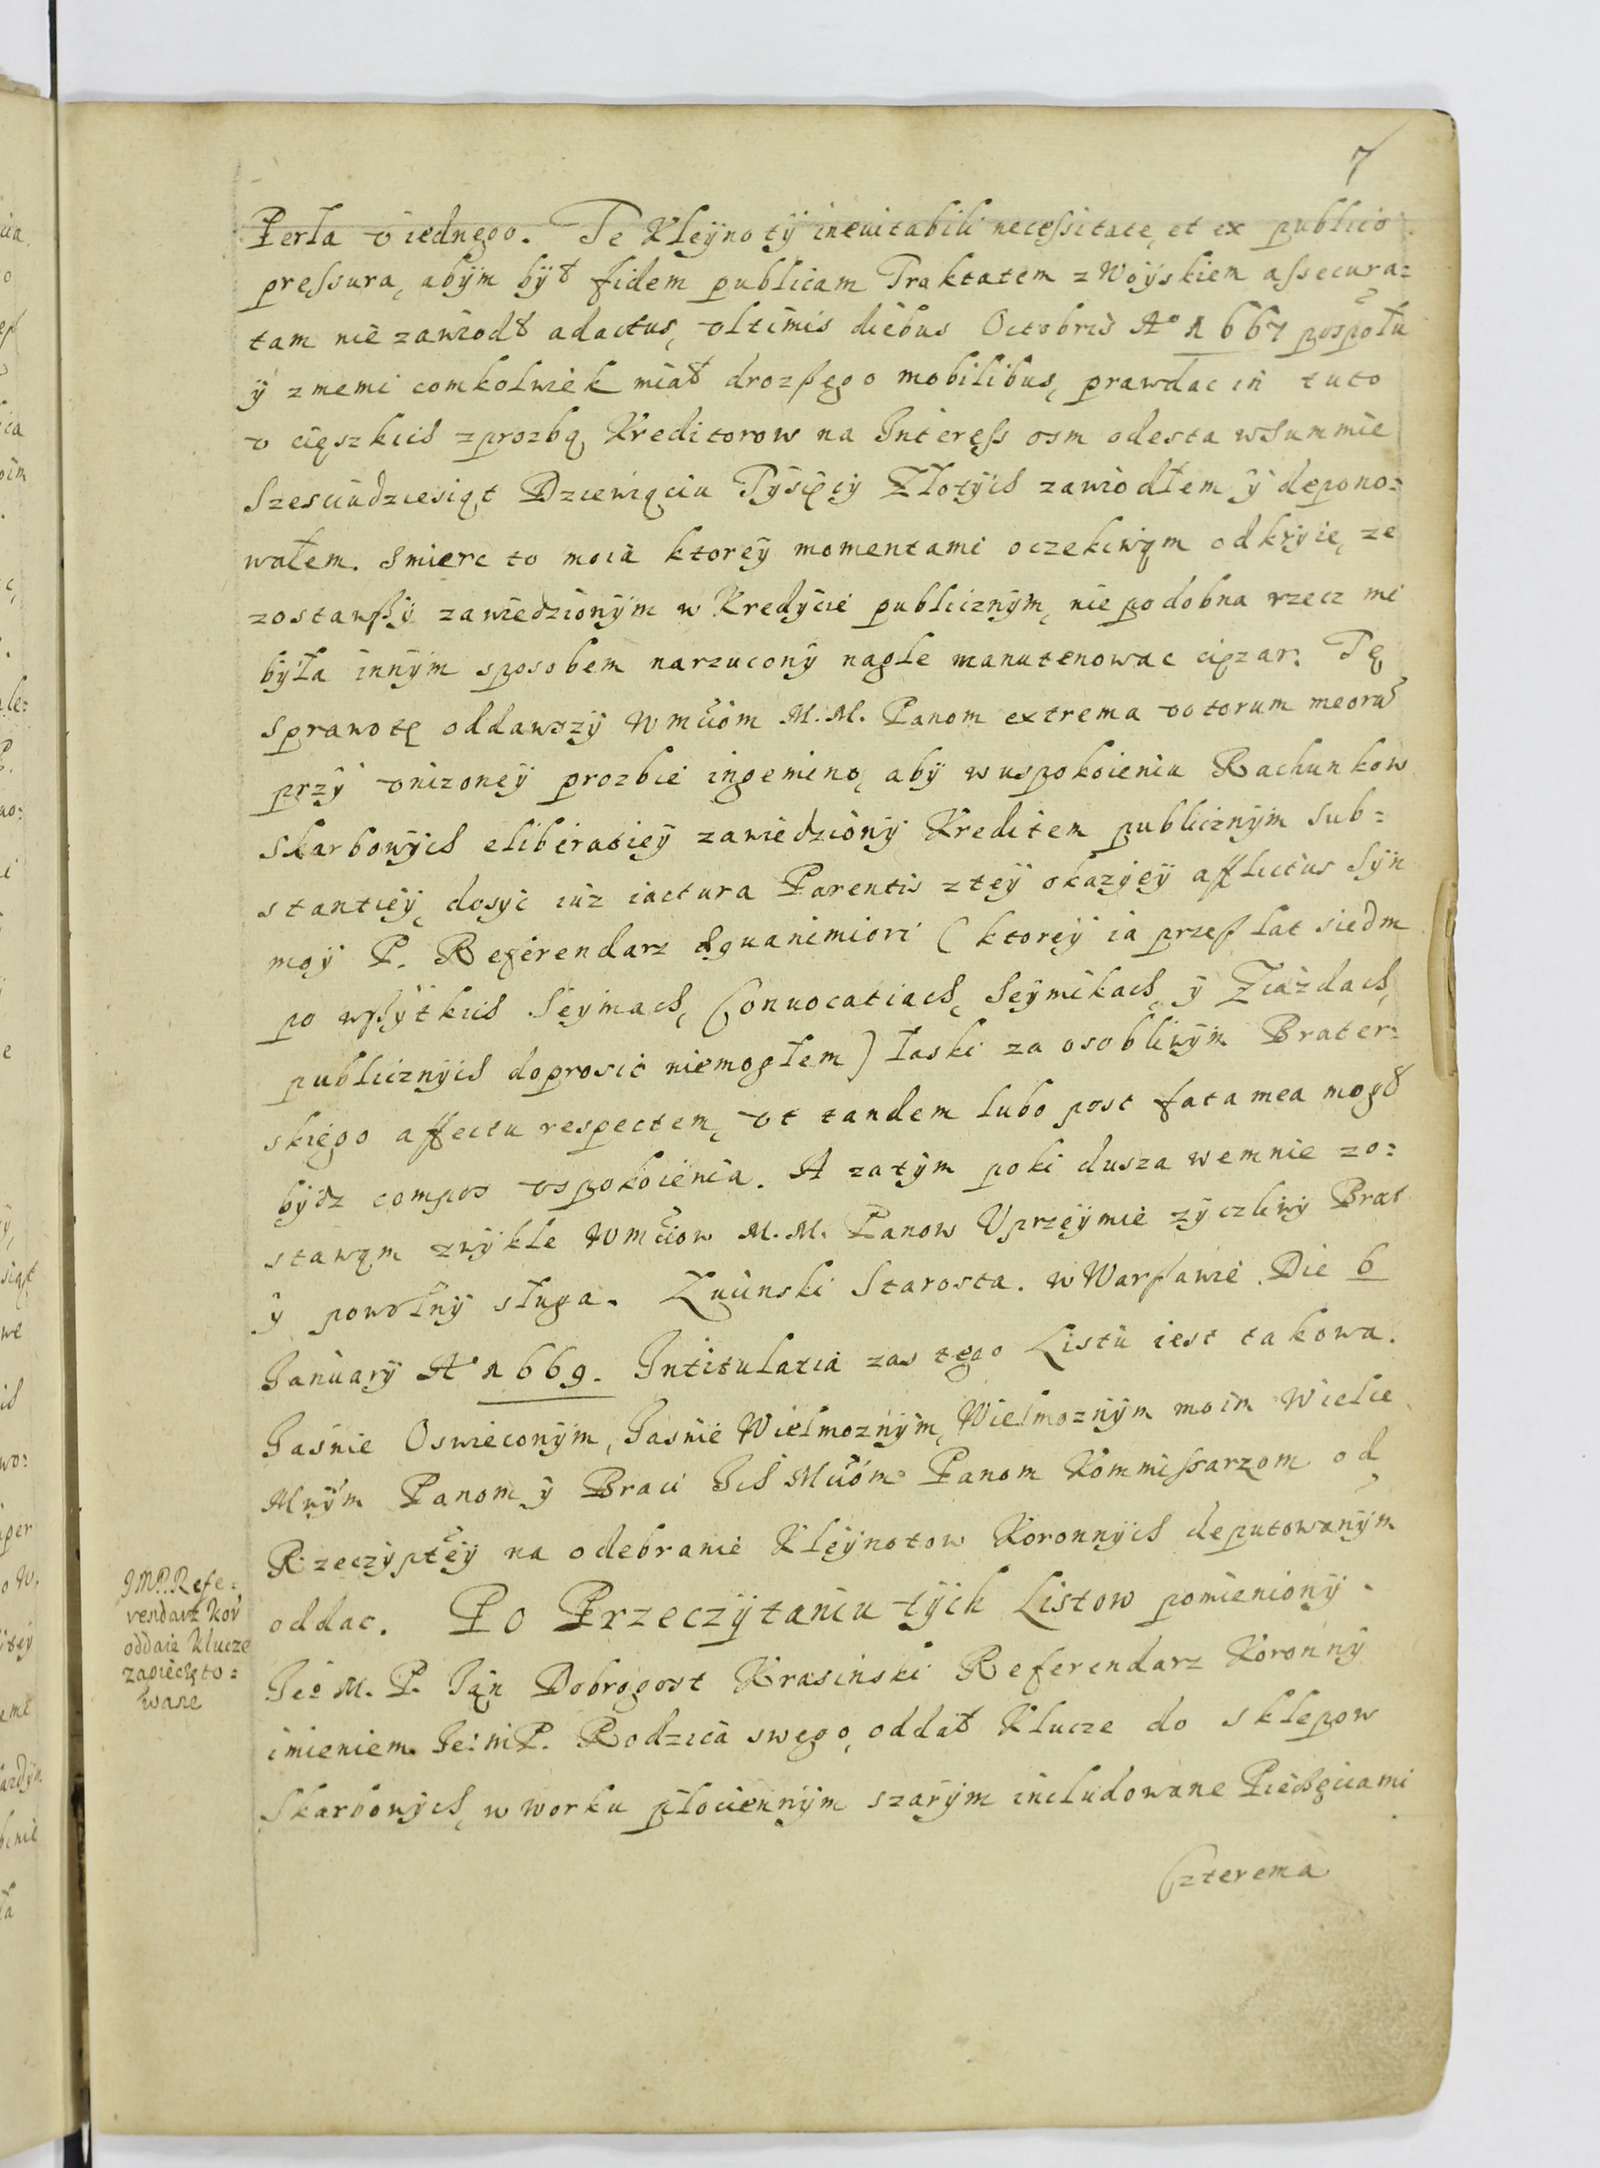 7
Perła v iednego. Te Kleÿnotÿ ineuitabili necessitate, et ex publico
pressura, abÿm bÿł fidem publicam Traktatem z Woÿskiem assecura=
tam nie zawiodł adactus, vltimis diebus Octobris A° 1667 pospołu
ÿ z memi comkolwiek miał drozszego mobilibus, prawdac in tuto
v cięszkich z prozbą Kreditorow na Interess osm odesta w Summie
Szesciudziesiąt Dziewiąciu Tÿsięcÿ Złotÿch zawiodłem ÿ depono=
wałem. Smierc to moia ktoreÿ momentami oczekiwąm odkrÿie, ze
zostawszÿ zawiedzionÿm w Kredÿcie publicznÿm, nie podobna rzecz mi
bÿła innÿm sposobem narzuconÿ nagle manutenowac cięzar. Tę
sprawotę oddawszÿ Wmciom M. M. Panom extrema votorum meorũ
przÿ vnizoneÿ prozbie ingemino, abÿ w uspokoieniu Rachunkow
skarbowÿch eliberatieÿ zawiedzionÿ Kreditem publicznÿm sub=
stantieÿ, dosÿc iuz iactura Parentis z teÿ okazÿeÿ afflictus Sÿn
moÿ P. Referendarz æquanimiori (ktoreÿ ia przesz lat siedm
po wszÿtkich Seÿmach, Conuocatiach, Seÿmikach, ÿ Ziazdach,
publicznÿch doprosic niemogłem) łaski za osobliwÿm Brater=
skiego affectu respectem, vt tandem lubo post fata mea mogł
bÿdz compos vspokoienia. A zatÿm poki dusza wemnie zo=
stawąm zwÿkle Wmciow M. M. Panow Uprzeÿmie zÿczliwÿ Brat
ÿ powolnÿ sługa. Zucinski Starosta. w Warszawie Die 6
Januarÿ A° 1669. Intitulatia zas tego Listu iest takowa.
Jasnie Oswieconÿm, Jasnie Wielmoznÿm, Wielmoznÿm moim Wielce
Mwÿm Panom ÿ Braci Ich Mciom Panom Kommissarzom od
Rzeczÿpteÿ na odebranie Kleÿnotow Koronnÿch deputowanÿm
oddac. Po Przeczÿtaniu tÿch Listow pomienionÿ
Je° M. P. Jan Dobrogost Krasinski Referendarz Koronnÿ
imieniem Je: M P. Rodzica swego, oddał Klucze do sklepow
Skarbowÿch, w worku płociennÿm szarÿm includowane Pieczęciami
Czterema
JMP. Refe=
rendarz Kor
oddaie Klucze
zapieczęto=
wane